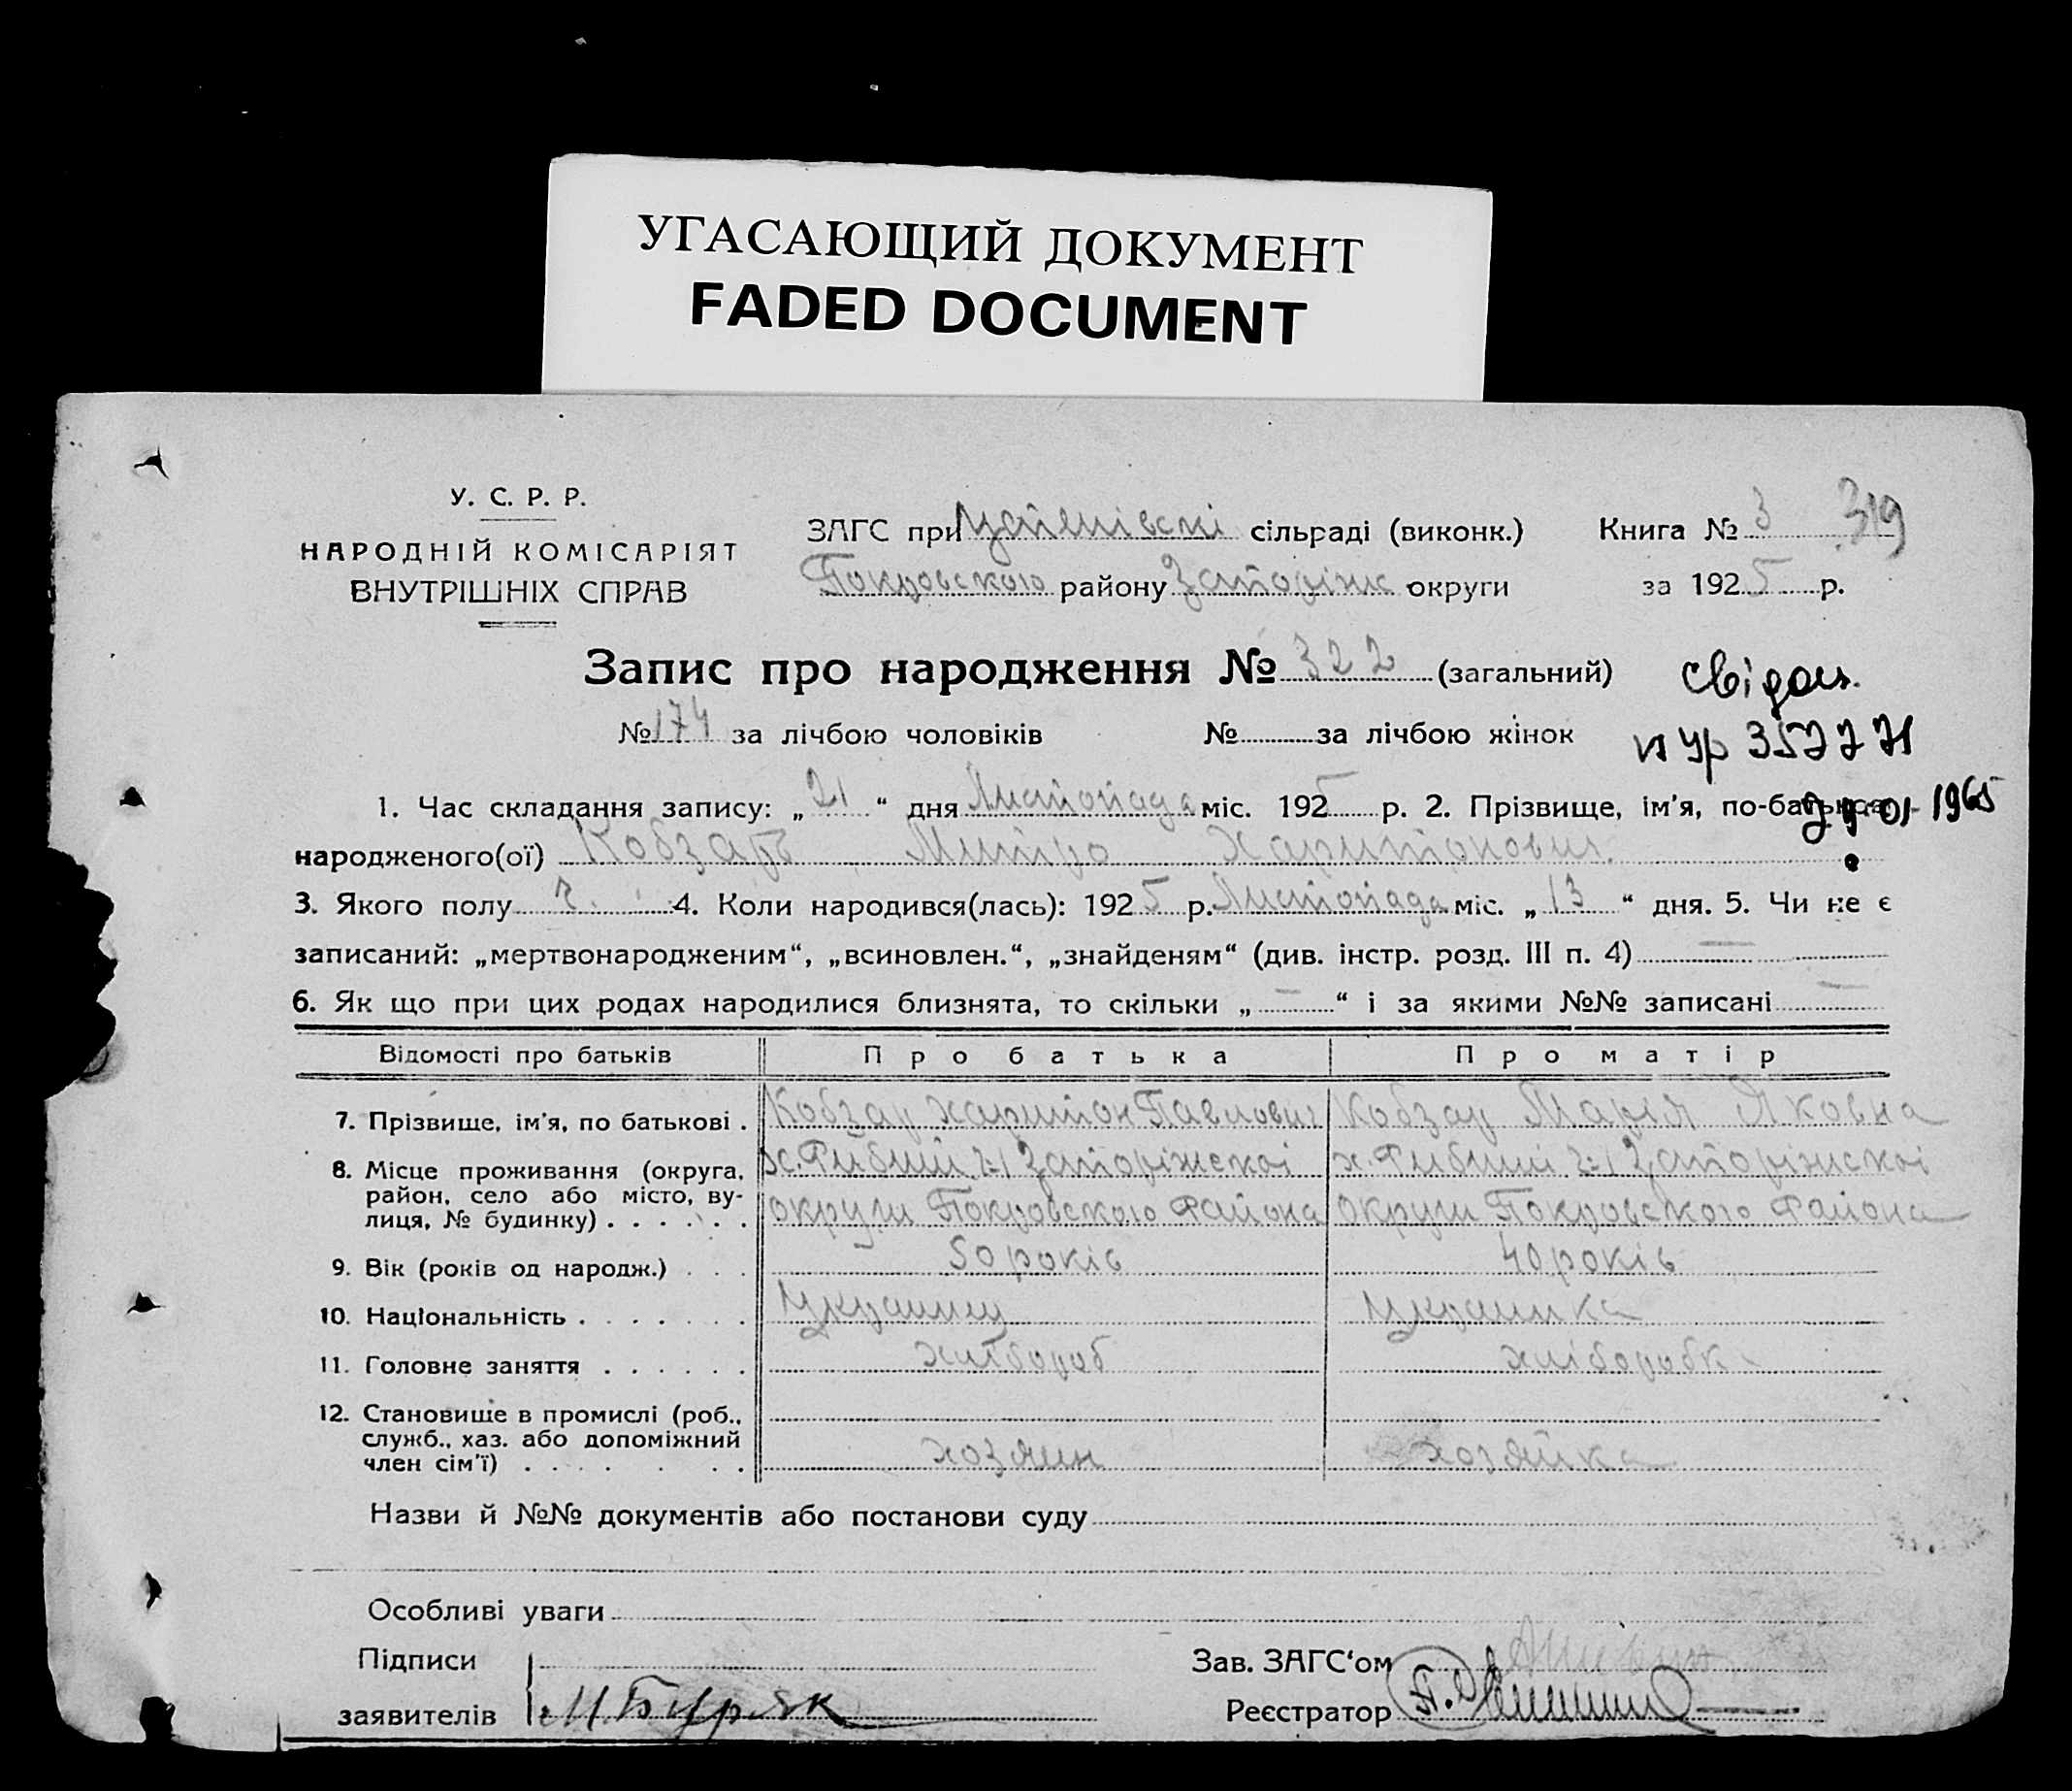 УГАСАЮЩИЙ ДОКУМЕНТ
FADED DOCUMENT
У. С. Р. Р.
НАРОДНІЙ КОМІСАРІЯТ
ВНУТРІШНІХ СПРАВ
ЗАГС при Успенівскі сільраді (виконк.) Книга № 3 319
Покровского району Запоріжс округи за 1925 р.
Запис про народження № 322 (загальний)
№ 174 за лічбою чоловіків № за лічбою жінок
1. Час складання запису: „21“ дня Листопада міс. 1925 р. 2. Прізвище, ім'я, по-батькові 1965
народженого(ої) Кобзарь Митро Харитонович
3. Якого полу ч. 4. Коли народився(лась): 1925 р. Листопада міс. „13“ дня. 5. Чи не є
записаний: „мертвонародженим“, „всиновлен.“, „знайденям“ (див. інстр. розд. III п. 4) —
6. Як що при цих родах народилися близнята, то скільки „—“ і за якими №№ записані —
Відомості про батьків Про батька Про матір
7. Прізвище, ім'я, по батькові . Кобзар Харитон Павлович Кобзар Марія Яковна
8. Місце проживання (округа, район, село або місто, вулиця, № будинку) . . . . . . х. Рибний Запоріжскої округи Покровского Района х. Рибний Запоріжскої округи Покровского Района
9. Вік (років од народж.) . . . 50 років 40 років
10. Національність . . . . . . . Украинец Украинка
11. Головне заняття . . . . . . хлібороб хліборобка
12. Становище в промислі (роб., служб., хаз. або допоміжний член сім'ї) . . . . . . хозяин хозяйка
Назви й №№ документів або постанови суду
Особливі уваги
Підписи
заявителів М Буряк
Зав. ЗАГС‘ом
Реєстратор